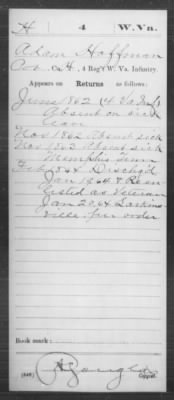 H 4 W.Va.
Adam Hoffman
Co. H, 4 Reg't W. Va. Infantry.
Appears on Returns as follows:
June 1862 (4 Va Inf)
Absent on sick
leave
Nov 1862 Absent sick
Nov 1863 Absent sick
Memphis Tenn
Feb 1864 Dischgd
Jan 1964 & Reen
listed as Veteran
Jan 20 64 Larkins
ville. per order
Book mark:
(546)
Copyist.